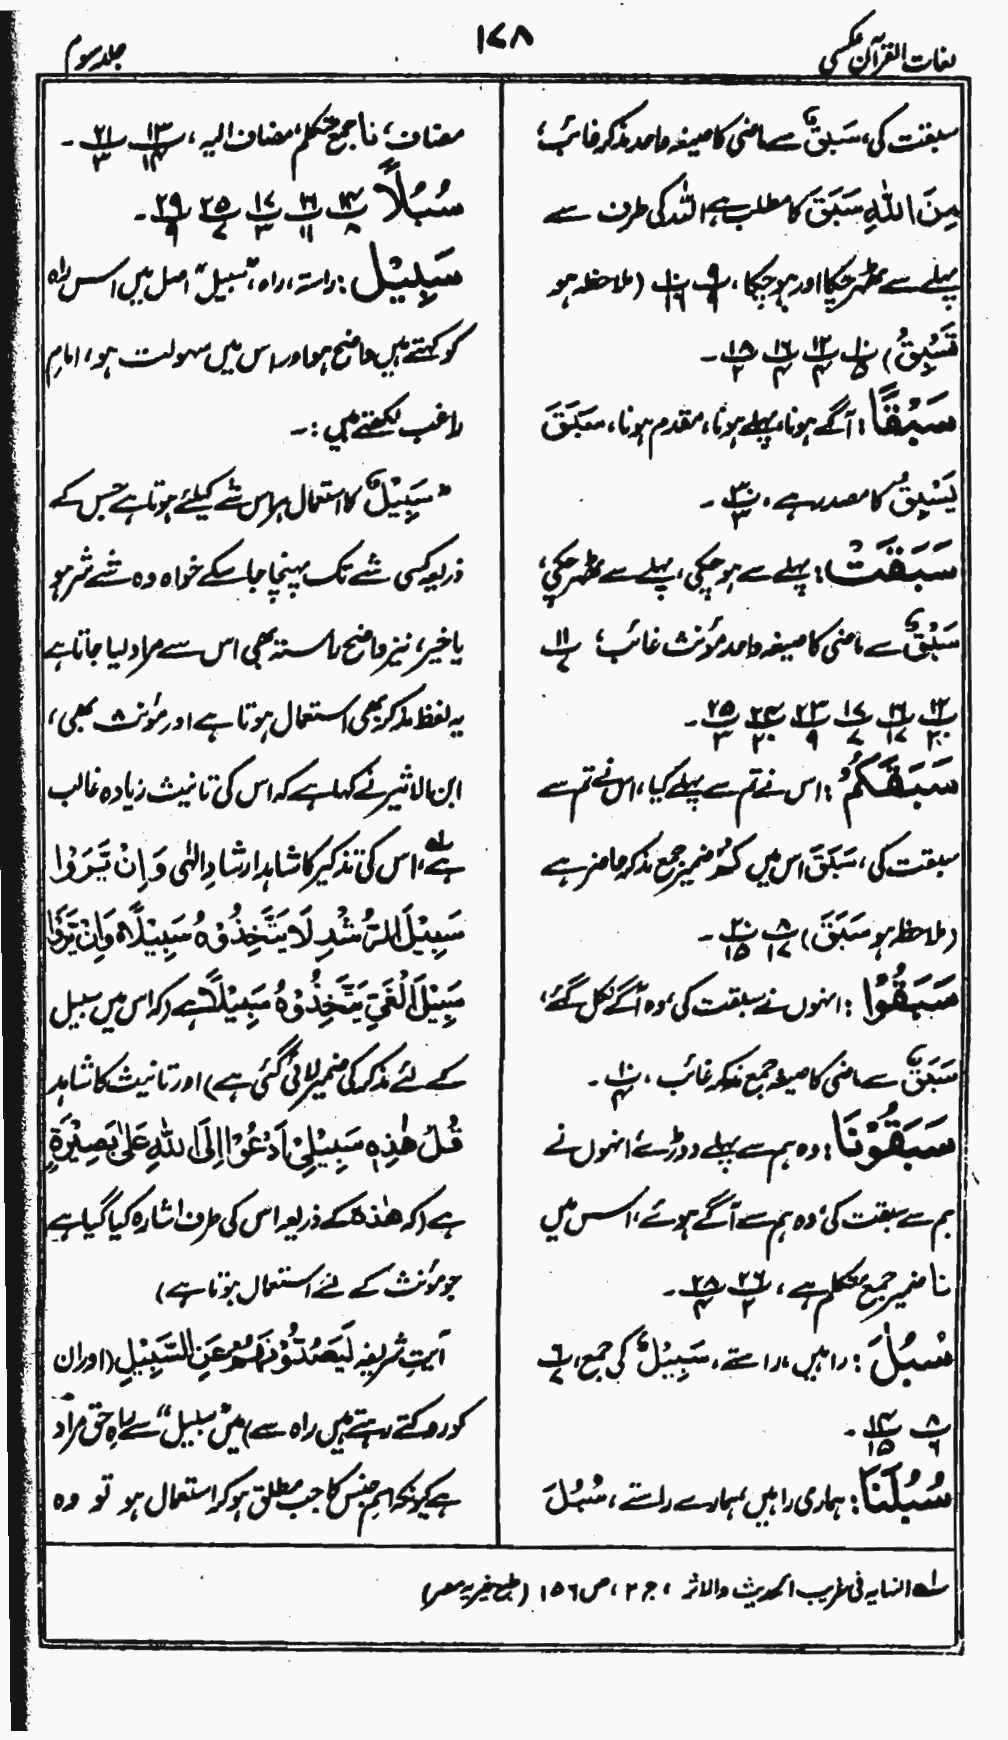 لغات القرآن عکسی
۱۷۸
جلد سوم
سبقت کی، سَبَقَ سے ماضی کا صیغہ واحد مذکر غائب،
مِنَ اللہِ سَبَقَ کا مطلب ہے اللہ کی طرف سے
پہلے سے ٹھہر چکا اور ہو چکا، ۹/۹ ۱۰/۱۶ (ملاحظہ ہو
تَسْبِقُ) ۱۰/۵ ۱۲/۴ ۱۶/۴ ۱۸/۲ ۔
سَبْقًا: آگے ہونا، پہلے ہونا، مقدم ہونا، سَبَقَ
یَسْبِقُ کا مصدر ہے، ۳۰/۳ ۔
سَبَقَتْ: پہلے سے ہو چکی، پہلے سے ٹھہر چکی،
سَبْقٌ سے ماضی کا صیغہ واحد مؤنث غائب، ۱۱/۷
۱۲/۲۰ ۱۶/۱۷ ۱۷/۷ ۲۳/۹ ۲۴/۲۰ ۲۵/۳ ۔
سَبَقَکُمْ: اس نے تم سے پہلے کیا، اس نے تم سے
سبقت کی، سَبَقَ اس میں کُمْ ضمیر جمع مذکر حاضر ہے
(ملاحظہ ہو سَبَقَ) ۸/۱۷ ۲۰/۱۵ ۔
سَبَقُوْا: انہوں نے سبقت کی، وہ آگے نکل گئے،
سَبْقٌ سے ماضی کا صیغہ جمع مذکر غائب، ۱۰/۴ ۔
سَبَقُوْنَا: وہ ہم سے پہلے دوڑے، انہوں نے
ہم سے سبقت کی، وہ ہم سے آگے ہوئے، اس میں
نا ضمیر جمع متکلم ہے، ۲۶/۲ ۲۸/۴ ۔
سُبُلَ: راہیں، راستے، سَبِیْلٌ کی جمع، ۶/۷
۸/۶ ۱۴/۱۵ ۔
سُبُلَنَا: ہماری راہیں، ہمارے راستے، سُبُلَ
مضاف، نا جمع متکلم، مضاف الیہ، ۱۳/۱۴ ۲۱/۳ ۔
سُبُلًا ۱۴/۸ ۱۶/۱۱ ۱۷/۳ ۲۵/۷ ۲۹/۹ ۔
سَبِیْل: راستہ، راہ، "سبیل" اصل میں اس راہ
کو کہتے ہیں واضح ہو اور اس میں سہولت ہو، امامِ
راغب لکھتے ہیں :۔
"سَبِیْلٌ کا استعمال ہر اس شے کیلئے ہوتا ہے جس کے
ذریعہ کسی شے تک پہنچا جا سکے خواہ وہ شے شر ہو
یا خیر، نیز واضح راستہ بھی اس سے مراد لیا جاتا ہے
یہ لفظ مذکر بھی استعمال ہوتا ہے اور مؤنث بھی،
ابن الاثیر نے کہا ہے کہ اس کی تانیث زیادہ غالب
ہے لہ، اس کی تذکیر کا شاہد ارشادِ الٰہی وَاِنْ یَّرَوْا
سَبِیْلَ الرُّشْدِ لَا یَتَّخِذُوْہُ سَبِیْلًا، وَاِنْ یَّرَوْا
سَبِیْلَ الْغَیِّ یَتَّخِذُوْہُ سَبِیْلًا ہے (کہ اس میں سبیل
کے لئے مذکر کی ضمیر لائی گئی ہے) اور تانیث کا شاہد
قُلْ ھٰذِہٖ سَبِیْلِیْ اَدْعُوْا اِلَی اللہِ عَلٰی بَصِیْرَۃٍ
ہے (کہ ھٰذہ کے ذریعہ اس کی طرف اشارہ کیا گیا ہے
جو مؤنث کے لئے استعمال ہوتا ہے)
آیتِ شریفہ لَیَصُدُّوْنَھُمْ عَنِ السَّبِیْلِ (اور ان
کو روکتے رہتے ہیں راہ سے) میں "سبیل" سے راہِ حق مراد
ہے کیونکہ اسمِ جنس کا جب مطلق ہو کر استعمال ہو تو وہ
لہ النہایہ فی غریب الحدیث والاثر، ج ۲، ص ۱۵۶ (طبع خیریہ مصر)